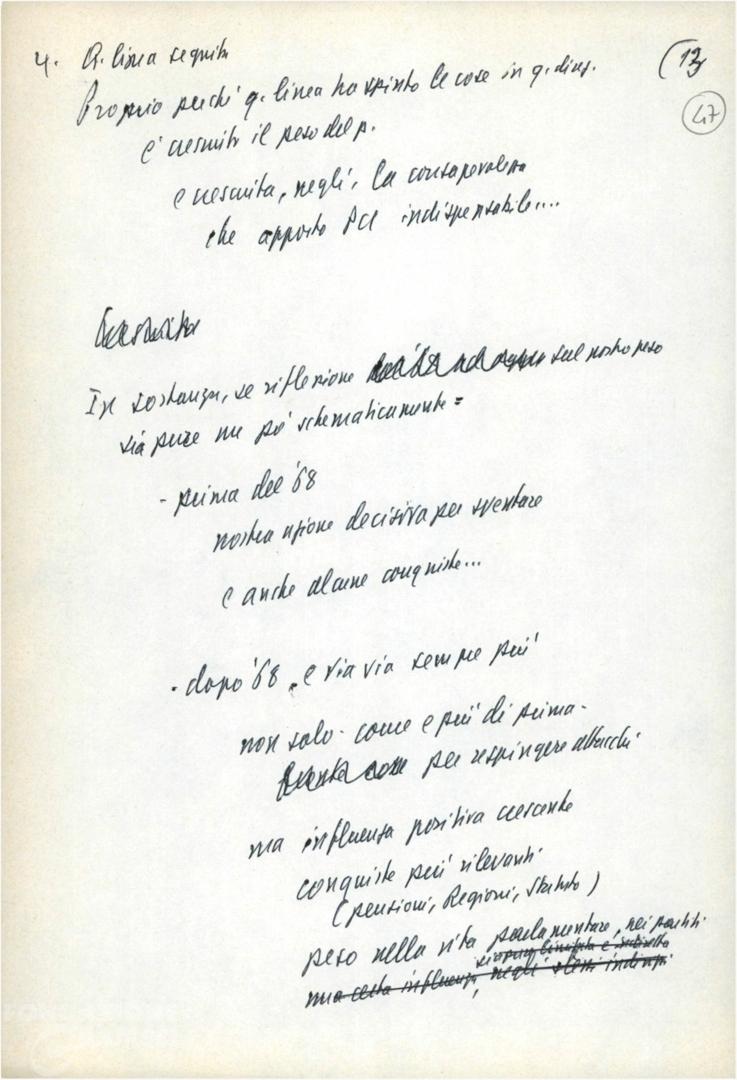 4. Q. linea seguita
(13
47
Proprio perché q. linea ha spinto le cose in q. direz.
è cresciuto il peso del p.
è cresciuta, negli, la consapevolezza
che apporto PCI indispensabile....
In sostanza, se riflessione sul nostro peso
sia pure un po' schematicamente =
- prima del '68
nostra azione decisiva per sventare
e anche alcune conquiste...
- dopo '68, e via via sempre più
non solo - come e più di prima -
per respingere attacchi
ma influenza positiva crescente
conquiste più rilevanti
(pensioni, Regioni, Statuto)
peso nella vita parlamentare, nei partiti
sia pure limitata e indiretta
una certa influenza, negli stessi indirizzi